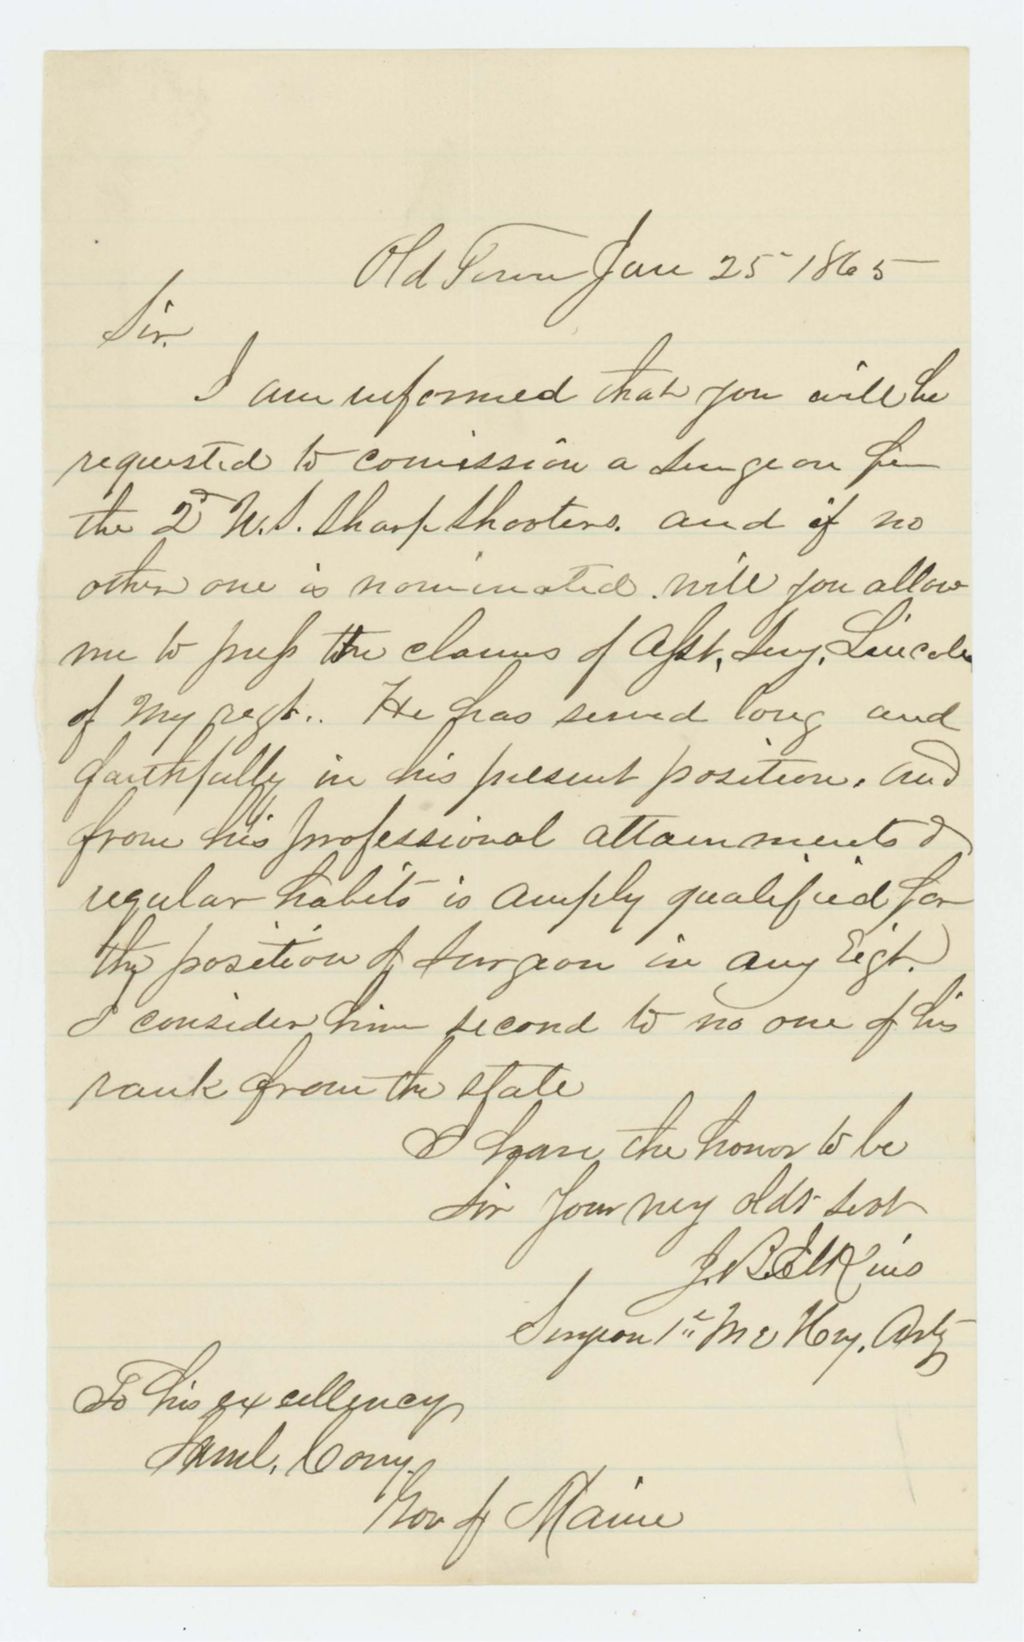 Old Town Jan 25 1865
Sir.
I am informed that you will be
requested to comission a Surgeon for
the 2d U.S. Sharp Shooters. and if no
other one is nominated. will you allow
me to press the claims of Asst. Surg. Lincoln
of my regt.. He has served long and
faithfully in his present position. and
from his professional attainments &
regular habits is amply qualified for
the position of Surgeon in any Regt.
I consider him second to no one of his
rank from the state
I have the honor to be
Sir Your very obdt Servt
J. B. Elkins
Surgeon 1st Me Hvy. Arty
To his excellency
Saml. Cony.
Gov of Maine